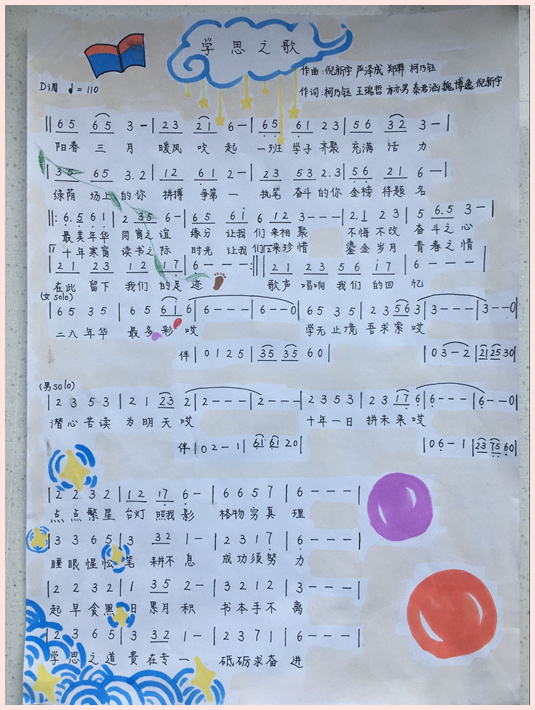 学思之歌
D调 ♩=110
作曲:倪新宇 严泽成 郑骅 柯乃钰
作词:柯乃钰 王瑞哲 秦君涵 魏博逸 倪新宇
‖ 6 5 6 5 3 - | 2 3 2 1 6 - | 6 5 6 1 2 3 | 5 6 3 2 3 - |
阳春 三 月 暖风 吹 起 一班 学子 齐聚 充满 活 力
| 3 5 6 5 3.2 | 1 2 6 1 6 - | 2 3 5 3 2.3 | 5 6 5 3 2 - |
绿荫 场上的你 拼搏 争第 一 执笔 奋斗的你 金榜 得题 名
最美年华 同窗之谊 缘分 让我 们来相聚 不悔不饮 奋斗之心
十年寒窗 读书之际 时光 让我 们来珍惜 鎏金岁月 青春之情
| 2 1 2 3 1 2 1 7 | 6 - - - :‖ 2 1 2 3 5 6 1 7 | 6 - - - |
在此 留下 我们的足 迹 歌声 唱响 我们的回 忆
(女solo)
| 6 5 3 5 | 6 5 6 1 6 | 6 - - - | 6 - - 0 | 6 5 3 5 | 2 3 5 6 3 | 3 - - - | 3 - - 0 |
二八年华 最多彩哎 学无止境 吾求索哎
伴 | 0 1 2 5 | 3 5 3 5 6 0 | | 0 3 - 2 | 2 1 2 5 3 0 |
(男solo)
| 2 3 5 3 | 2 1 2 3 2 | 2 - - - | 2 - - - | 2 3 5 3 | 2 3 1 7 6 | 6 - - - | 6 - - 0 |
潜心苦读 为明天哎 十年一日 拼未来哎
伴 | 0 2 - 1 | 6 1 6 1 2 0 | | 0 6 - 1 | 2 3 7 5 6 0 |
| 2 2 3 2 | 1 2 1 7 6 - | 6 6 5 7 | 6 - - - |
点点繁星 台灯 照我 影 格物穷真 理
| 3 3 6 5 | 3 3 2 1 - | 2 3 1 7 | 6 - - - |
睡眼惺忪 笔耕不息 成功须努 力
| 2 2 3 2 | 1 3 5 2 - | 3 2 1 2 | 3 - - - |
起早食黑 日累月积 书本手不 离
| 2 3 6 5 | 3 3 2 1 - | 2 3 7 1 | 6 - - - |
学思之道 贵在专一 砥砺求奋 进